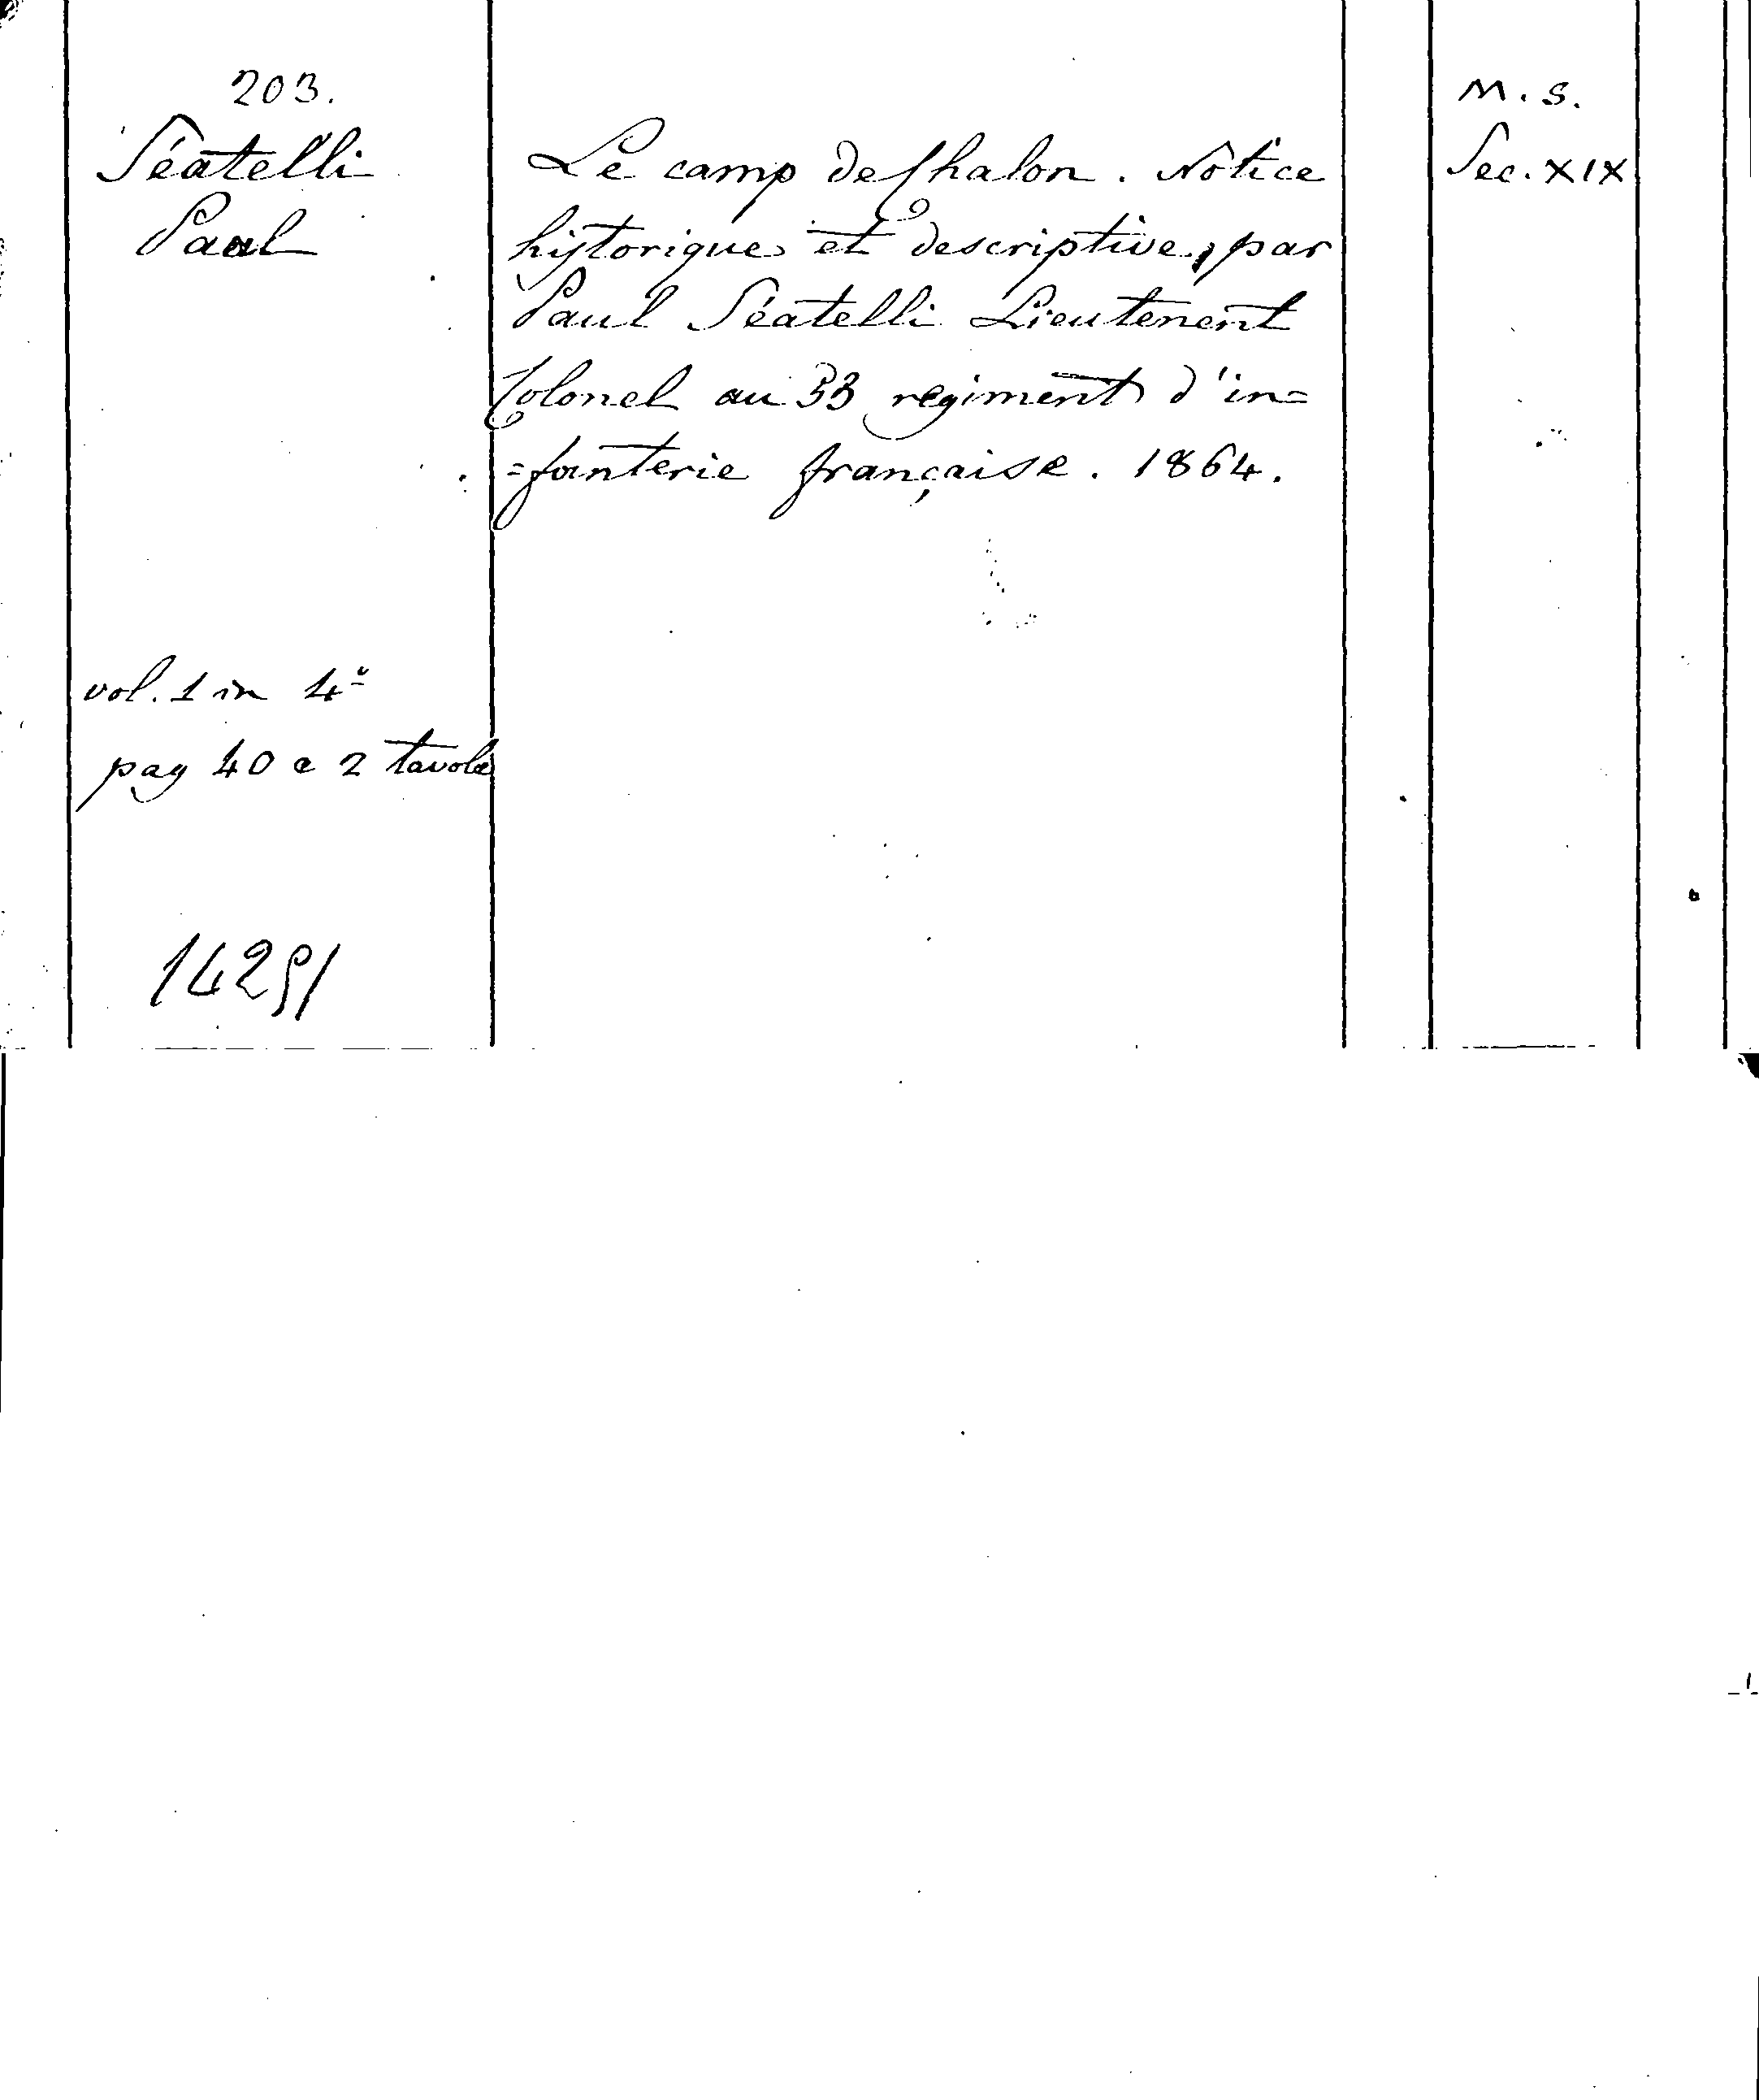 203.
Séatelli
Paul
vol. 1 in 4º
pag 40 e 2 tavole
14291
Le camp de Chalon. Notice
historique et descriptive, par
Paul Séatelli Lieutenent
Colonel au 33 regiment d'in=
=fanterie française. 1864.
M.S.
Sec. XIX